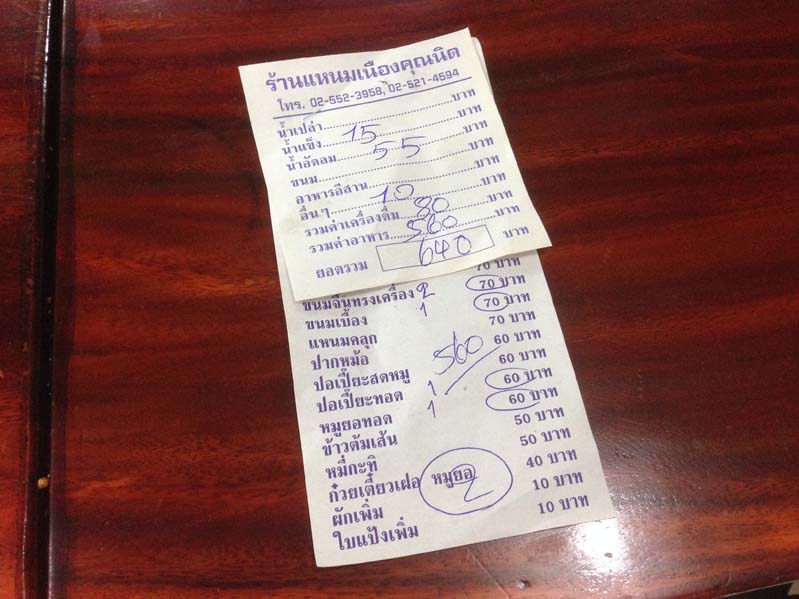 ร้านแหนมเนืองคุณนิด
โทร. 02-552-3958, 02-521-4594
น้ำเปล่า...............................บาท
น้ำแข็ง 15 บาท
น้ำอัดลม 55 บาท
ขนม...............................บาท
อาหารอีสาน...............................บาท
อื่น ๆ 10 บาท
รวมค่าเครื่องดื่ม 80 บาท
รวมค่าอาหาร 560 บาท
ยอดรวม 640 บาท
70 บาท
ขนมจีนทรงเครื่อง 2 70 บาท
ขนมเบื้อง 1 70 บาท
แหนมคลุก 70 บาท
ปากหม้อ 60 บาท
560
ปอเปี๊ยะสดหมู 60 บาท
ปอเปี๊ยะทอด 1 60 บาท
หมูยอทอด 1 60 บาท
ข้าวต้มเส้น 50 บาท
หมี่กะทิ 50 บาท
ก๋วยเตี๋ยวเฝอ หมูยอ 2 40 บาท
ผักเพิ่ม 10 บาท
ใบแป้งเพิ่ม 10 บาท